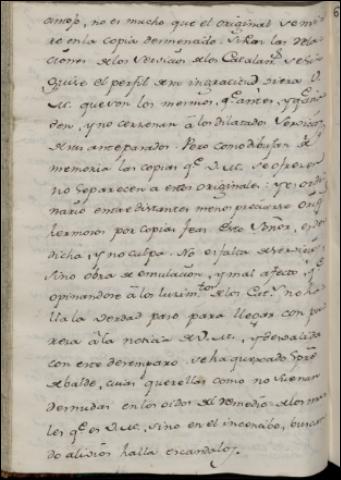 amojo, no es mucho que el original se mi
re en la copia desmentido. Si las Rela
ciones de los servicios de los Catalan.s
el perfil de mi ingratitud diera
M. que son los mesmos, q.e antes, y q.e
den, y no cerrenan á los dilatados servicios
de sus antepasados. Pero como dibujan la
memoria las copias q.e D. M. se ofrecen
no se parecen a estos originales: y es ordi
nario entre distantes menos preciarse orig
hermosos por copias feas. Esto Señor, es des
dicha, y no culpa. No es falta de servicios,
sino obra de emulacion, y mal afecto, q.e
opinandose á los lucim.tos de los Cat.s no ha
lla la verdad paso para llegar con
reza á la noticia de V. M., y desvalida
con este desamparo se ha quexado
de balde, cuias querellas como no suenan
desnudas en los oidos del remedio de los ma
les q.e es V. M., sino en el incendio, buscan
do alivios halla escandalos.
6